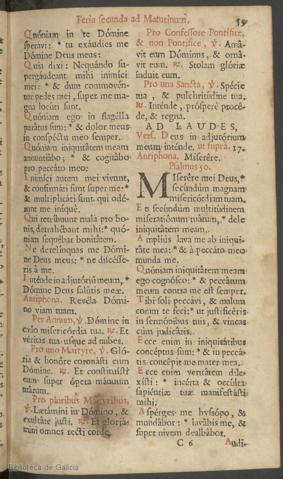 Feria secunda ad Matutinum.
59
Quóniam in te Dómine
speravi: * tu exáudies me
Dómine Deus meus:
Quia dixi: Nequándo su-
pergáudeant mihi inimíci
mei: * & dum commovén-
tur pedes mei, super me ma-
gna locúti sunt.
Quóniam ego in flagélla
parátus sum: * & dolor meus
in conspéctu meo semper.
Quóniam iniquitátem meam
annuntiábo: * & cogitábo
pro peccáto meo.
Inimíci autem mei vivunt,
& confirmáti sunt super me: *
& multiplicáti sunt, qui odé-
runt me iníquè.
Qui retríbuunt mala pro bo-
nis, detrahébant mihi: * quó-
niam sequébar bonitátem.
Ne derelínquas me Dómi-
ne Deus meus: * ne discésse-
ris à me.
Inténde in adjutórium meum, *
Dómine Deus salútis meæ.
Antiphona. Revéla Dómi-
no viam tuam.
Per Annum, ℣. Dómine in
cælo misericórdia tua, ℟. Et
véritas tua usque ad nubes.
Pro uno Martyre, ℣. Gló-
ria & honóre coronásti eum
Dómine. ℟. Et constituísti
eum super ópera mánuum
tuárum.
Pro pluribus Martyribus,
℣. Lætámini in Dómino, &
exultáte justi. ℟. Et gloriá-
mini omnes recti corde.
Pro Confessore Pontifice,
& non Pontifice, ℣. Amá-
vit eum Dóminus, & orná-
vit eum. ℟. Stolam glóriæ
índuit eum.
Pro una Sancta, ℣. Spécie
tua, & pulchritúdine tua.
℟. Inténde, próspere procé-
de, & regna.
AD LAUDES,
Vers. Deus in adjutórium
meum inténde. ut suprà. 17.
Antiphona. Miserére.
Psalmus 50.
Miserére mei Deus, *
secúndùm magnam
misericórdiam tuam.
Et secúndùm multitúdinem
miseratiónum tuárum, * dele
iniquitátem meam.
Ampliùs lava me ab iniqui-
táte mea: * & à peccáto meo
munda me.
Quóniam iniquitátem meam
ego cognósco: * & peccátum
meum contra me est semper.
Tibi soli peccávi, & malum
coram te feci: * ut justificéris
in sermónibus tuis, & vincas
cùm judicáris.
Ecce enim in iniquitátibus
concéptus sum: * & in peccá-
tis concépit me mater mea.
Ecce enim veritátem dile-
xísti: * incérta & occúlta
sapiéntiæ tuæ manifestásti
mihi.
Aspérges me hyssópo, &
mundábor: * lavábis me, &
super nivem dealbábor.
C 6 Audí-
Biblioteca de Galicia